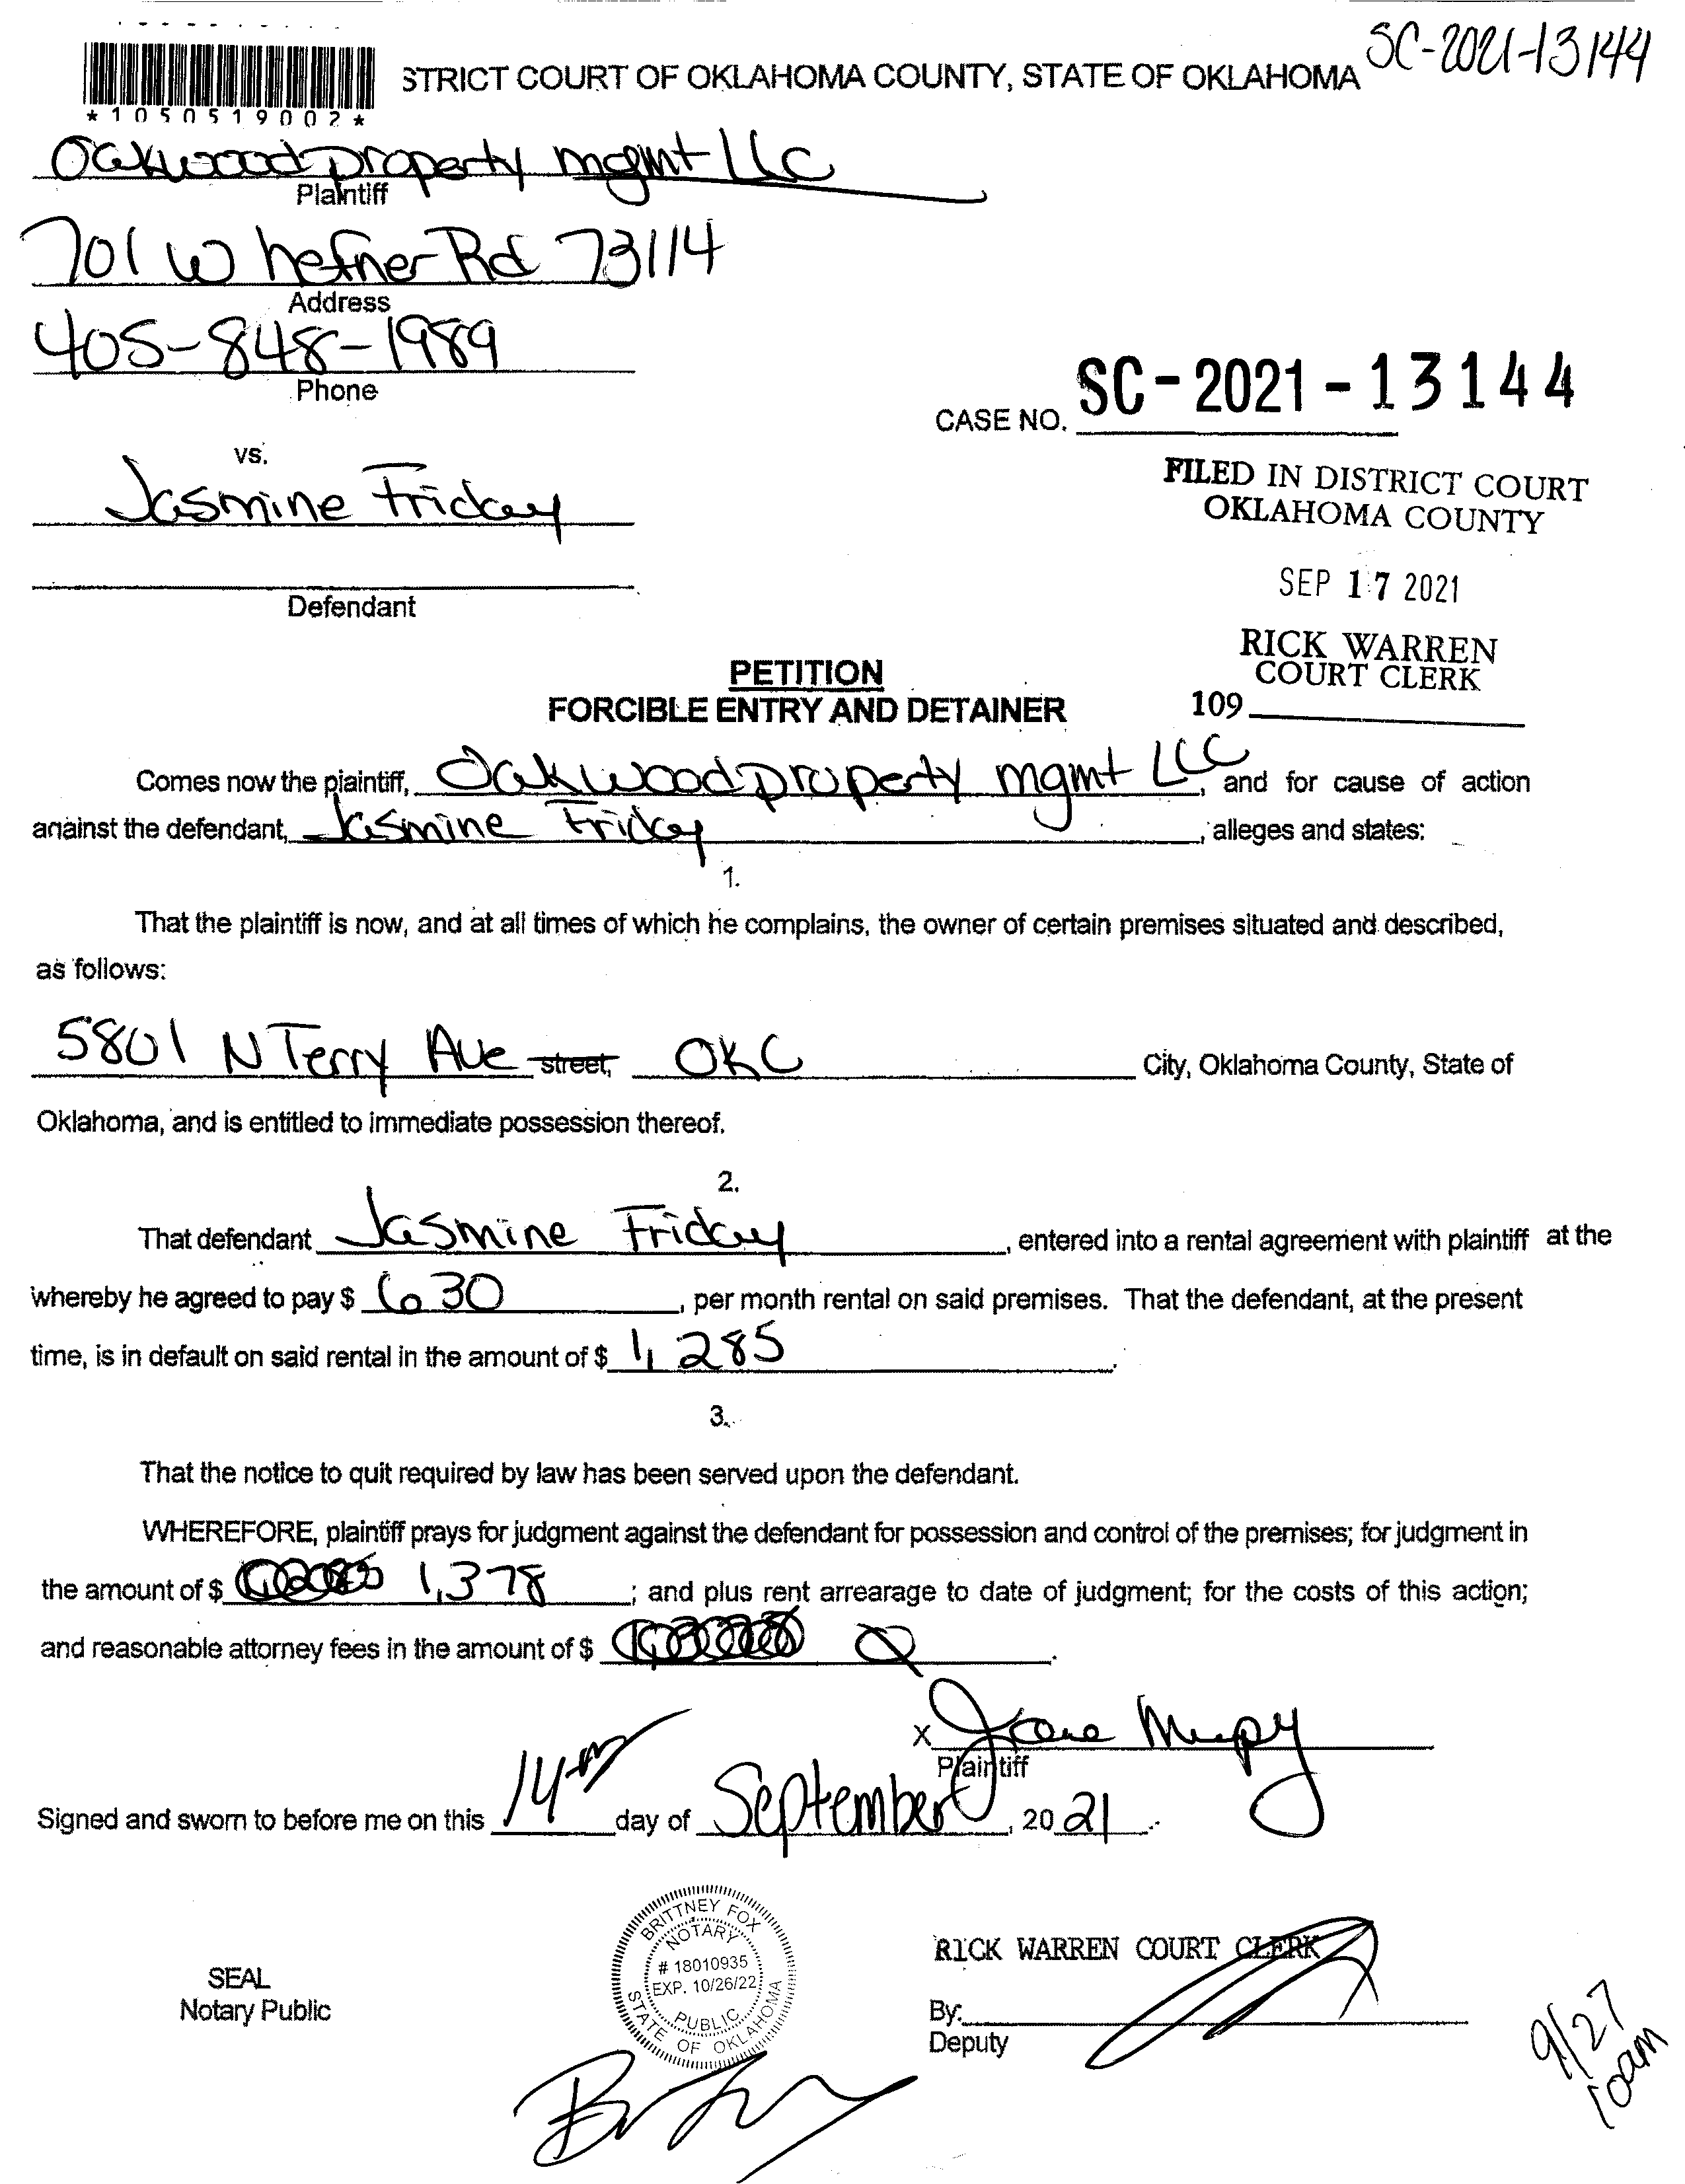 SC-2021-13144
STRICT COURT OF OKLAHOMA COUNTY, STATE OF OKLAHOMA
*1050519002*
Oakwood property mgmt LLC
Plaintiff
701 W hefner Rd 73114
Address
405-848-1989
Phone
CASE NO. SC-2021-13144
vs.
Jasmine Friday
FILED IN DISTRICT COURT
OKLAHOMA COUNTY
SEP 17 2021
Defendant
RICK WARREN
COURT CLERK
109
PETITION
FORCIBLE ENTRY AND DETAINER
Comes now the plaintiff, Oakwood property mgmt LLC, and for cause of action
against the defendant, Jasmine Friday, alleges and states:
1.
That the plaintiff is now, and at all times of which he complains, the owner of certain premises situated and described,
as follows:
5801 N Terry Ave street, OKC City, Oklahoma County, State of
Oklahoma, and is entitled to immediate possession thereof.
2.
That defendant Jasmine Friday, entered into a rental agreement with plaintiff at the
whereby he agreed to pay $ 630, per month rental on said premises. That the defendant, at the present
time, is in default on said rental in the amount of $ 1,285.
3.
That the notice to quit required by law has been served upon the defendant.
WHEREFORE, plaintiff prays for judgment against the defendant for possession and control of the premises; for judgment in
the amount of $ 1,378; and plus rent arrearage to date of judgment; for the costs of this action;
and reasonable attorney fees in the amount of $
X
Plaintiff
Signed and sworn to before me on this 14th day of September, 2021.
BRITTNEY FOX
NOTARY
# 18010935
EXP. 10/26/22
PUBLIC
STATE OF OKLAHOMA
SEAL
Notary Public
RICK WARREN COURT CLERK
By:
Deputy
9/27
10am